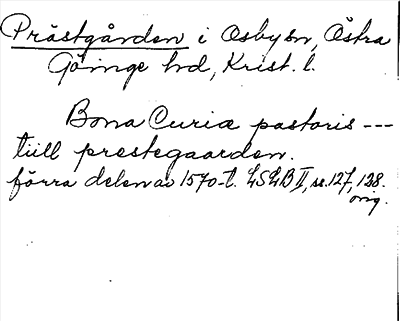 Prästgården i Osby sn, Östra
Göinge hd, Krist. l.
Bona Curiæ pastoris ---
tiill prestegaarden.
förra delen av 1570-t. LSLB II, ss. 127, 128.
orig.